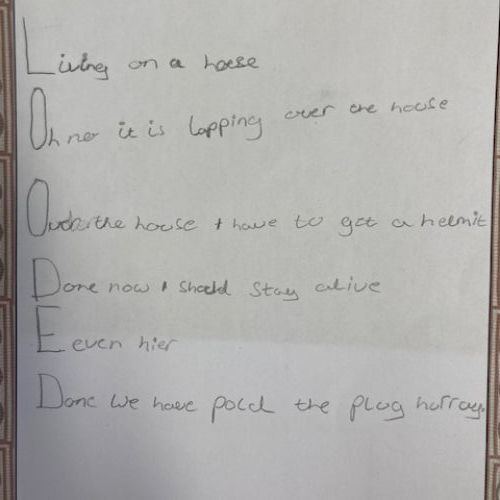 Living on a house
Oh no it is lapping over the house
Over the house I have to get a helmit
Done now I should stay alive
Eeven hier
Done We have pold the plug horray